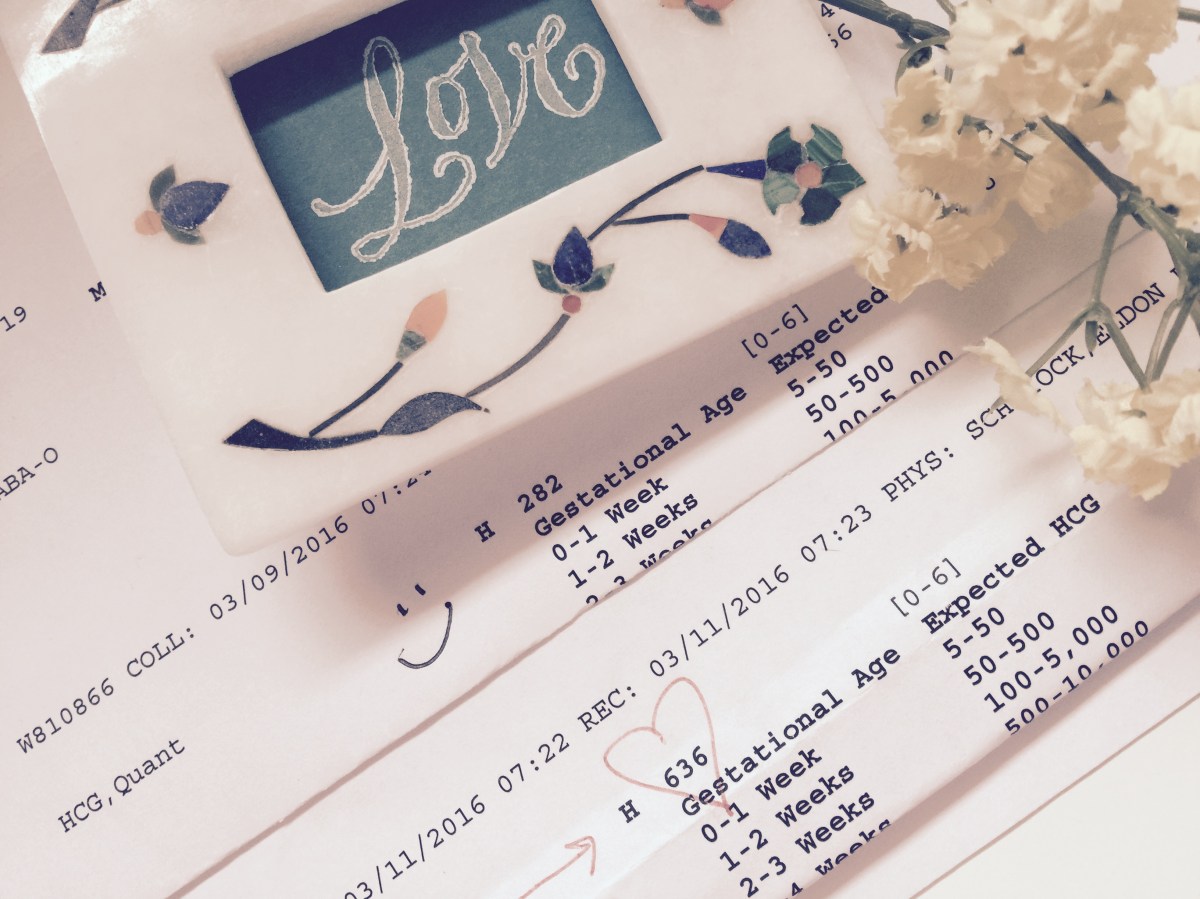 Love
19
M
ABA-O
W810866 COLL: 03/09/2016
HCG,Quant
H 282 [0-6]
Gestational Age Expected
0-1 Week 5-50
1-2 Weeks 50-500
2-3 Weeks 100-5,000
03/11/2016 07:22 REC: 03/11/2016 07:23 PHYS:
H 636 [0-6]
Gestational Age Expected HCG
0-1 Week 5-50
1-2 Weeks 50-500
2-3 Weeks 100-5,000
4 Weeks 500-10,000